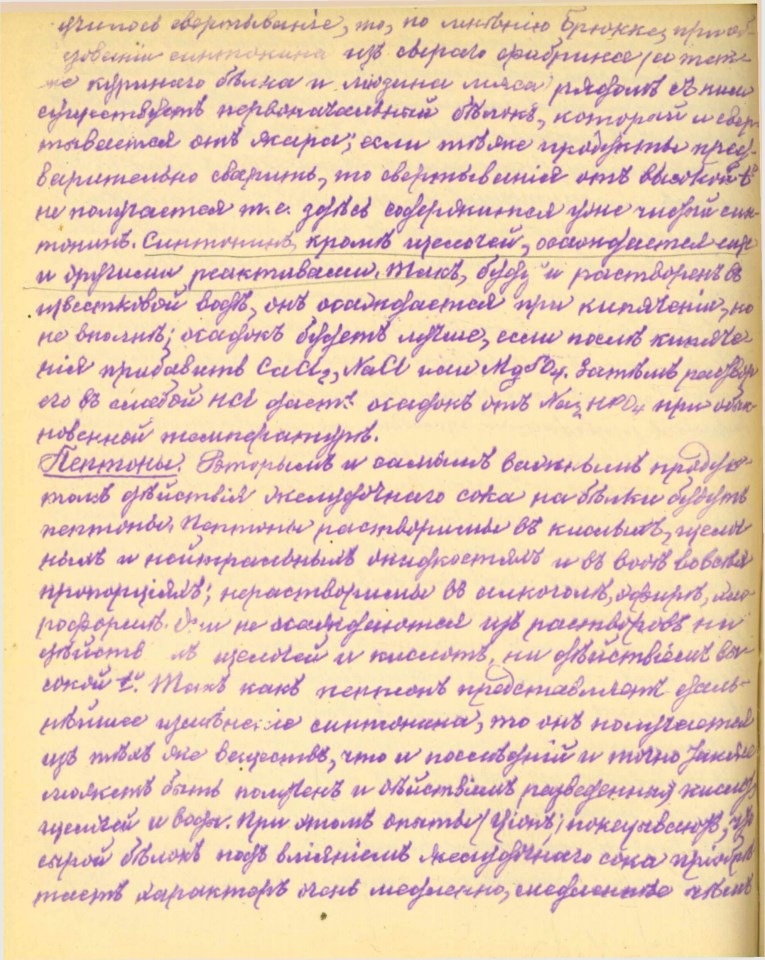 училось свертываніе, то, по мнѣнію Брюкке, при об-
зованіи синтонина изъ сырого фибрина (а так-
же куринаго бѣлка и мяса) рядомъ съ ним
существуетъ первоначальный бѣлокъ, который и свер-
тывается отъ жара; если тѣ же продукты пред-
варительно сварить, то свертыванія отъ высокой t°
не получается т.е. здѣсь содержится уже чистый син-
тонинъ. Синтонинъ, кромѣ щелочей, осаждается еще
и другими реактивами. Такъ, будучи растворенъ въ
известковой водѣ, онъ осаждается при кипяченіи, но
не вполнѣ; осадокъ будетъ лучше, если послѣ кипяче-
нія прибавить CaCl2, NaCl или MgSO4. Затѣмъ раствор
его въ слабой HCl даетъ осадокъ отъ Na2HPO4 при обык-
новенной температурѣ.
Пептоны. Вторымъ и самымъ важнымъ продук-
томъ дѣйствія желудочнаго сока на бѣлки будутъ
пептоны. Пептоны растворимы въ кислыхъ, щелоч
ныхъ и нейтральныхъ жидкостяхъ и въ водѣ во всѣхъ
пропорціяхъ; нерастворимы въ алкоголѣ, эфирѣ, хло
роформѣ. Они не осаждаются изъ растворовъ ни
дѣйств мъ щелочей и кислотъ, ни дѣйствіемъ вы-
сокой t°. Такъ какъ пептонъ представляетъ даль-
нѣйшее измѣненіе синтонина, то онъ получается
изъ тѣхъ же веществъ, что и послѣдній и точно также
можетъ быть полученъ и дѣйствіемъ разведенныхъ кислот,
щелочей и воды. При этомъ опыты показываютъ, что
сырой бѣлокъ подъ вліяніемъ желудочнаго сока пріобрѣ
таетъ характеръ очень медленно, медленнѣе чѣмъ